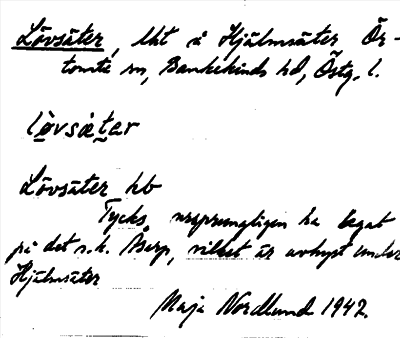 Lövsäter, lht å Hjälmsäter Ör-
tomta sn, Bankekinds hd, Östg. l.
lövsätər
Lövsäter hb
Tycks ursprungligen ha legat
på det s.k. Åserp, vilket är avhyst under
Hjälmsäter
Maja Nordlund 1942.